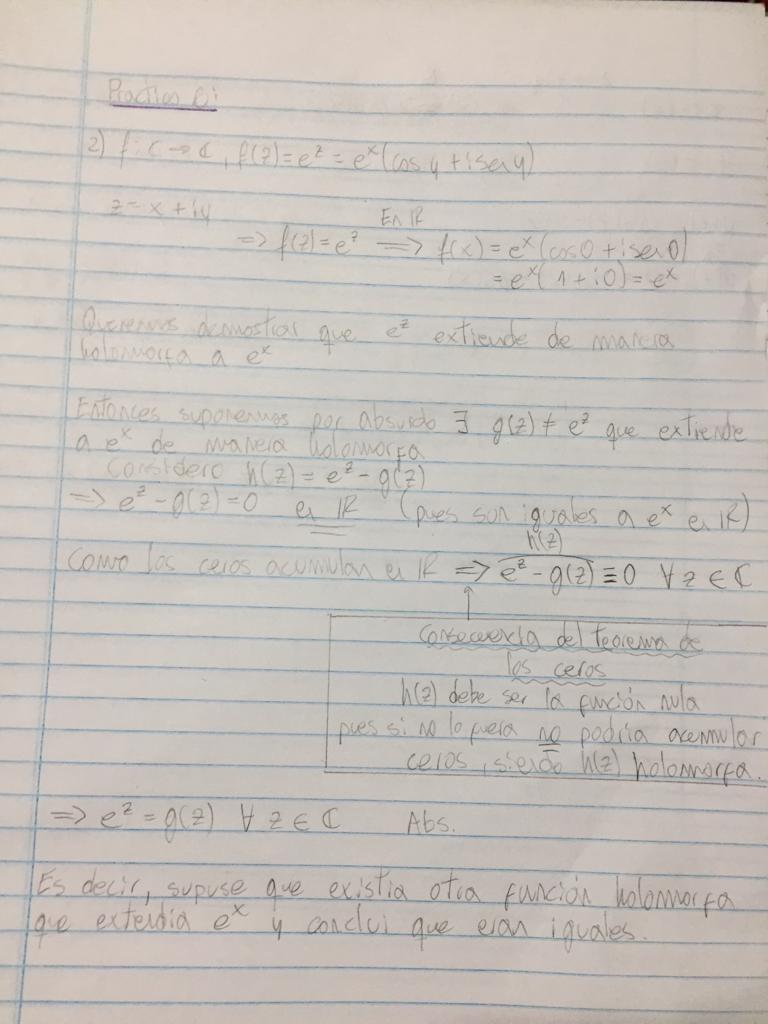 Practica 6:
2) f: ℂ → ℂ, f(z) = e^z = e^x (cos y + i sen y)
z = x + iy
En ℝ
=> f(z) = e^z => f(x) = e^x (cos 0 + i sen 0)
= e^x (1 + i0) = e^x
Queremos demostrar que e^z extiende de manera
holomorfa a e^x
Entonces suponemos por absurdo ∃ g(z) ≠ e^z que extiende
a e^x de manera holomorfa
Considero h(z) = e^z - g(z)
=> e^z - g(z) = 0 en ℝ (pues son iguales a e^x en ℝ)
h(z)
Como los ceros acumulan en ℝ => e^z - g(z) ≡ 0 ∀ z ∈ ℂ
Consecuencia del teorema de
los ceros
h(z) debe ser la función nula
pues si no lo fuera no podría acumular
ceros, siendo h(z) holomorfa.
=> e^z = g(z) ∀ z ∈ ℂ Abs.
Es decir, supuse que existia otra función holomorfa
que extendia e^x y conclui que eran iguales.